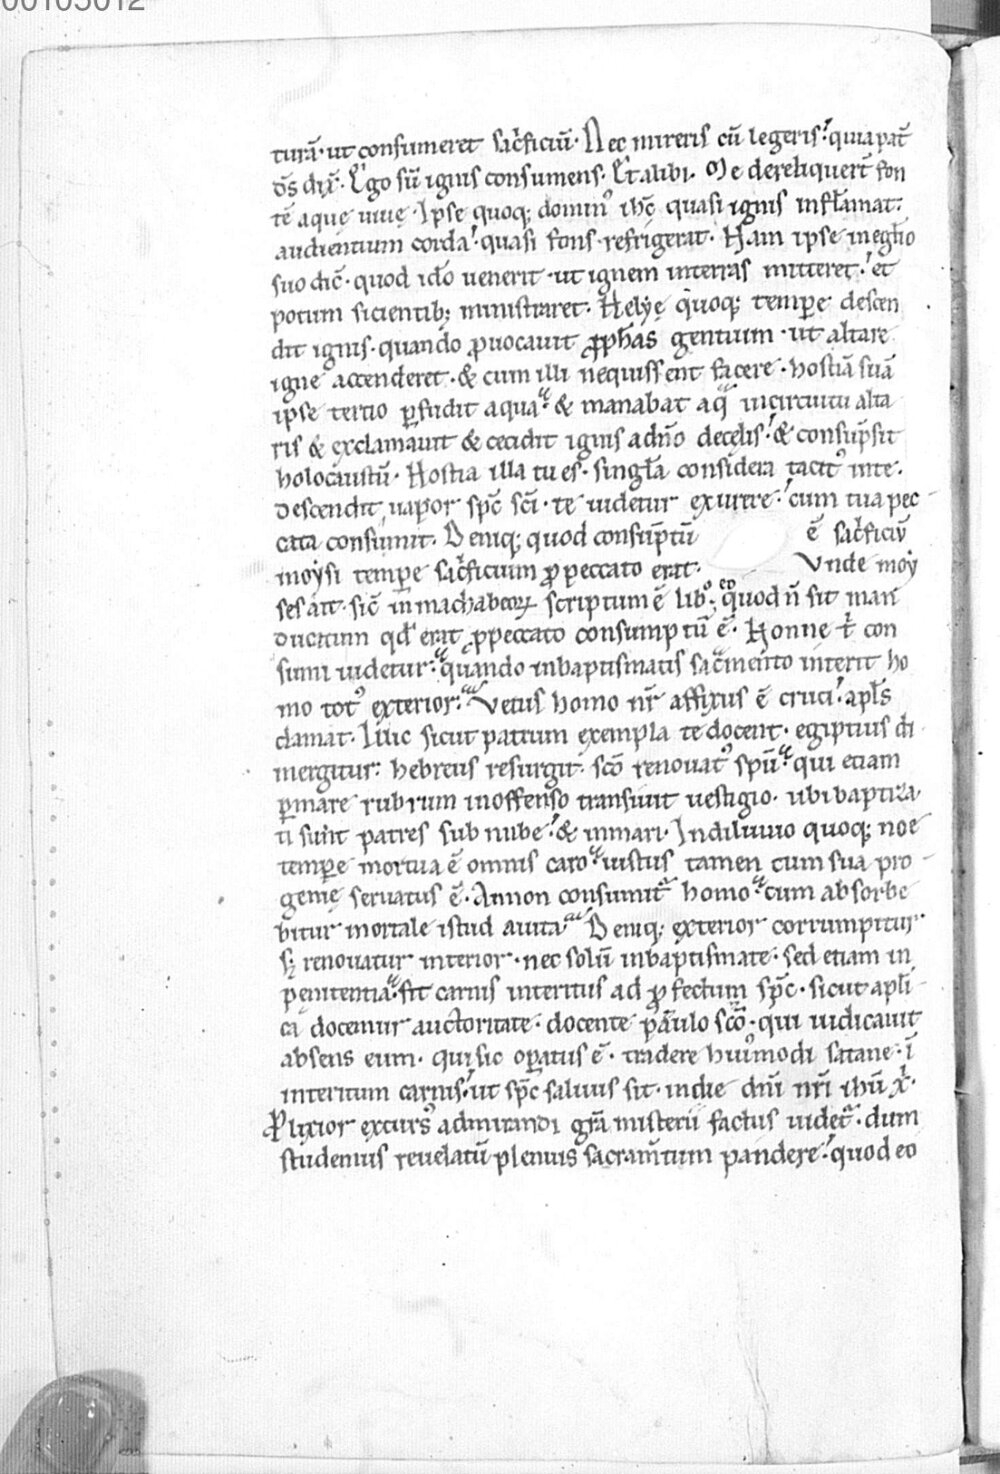 00105012
turā· ut consumeret sac̄rficiū· Nec mireris cū legeris· quia pat̄
d̄s dix̄· Ego sū ignis consumens· Et alibi· Me dereliquer̄t fon
tē aquę viuę· Ipse quoq; domin᷒ ihc̄ quasi ignis inflāmat·
audientium corda· quasi fons refrigerat· Nam ipse in eglīo
suo dic̄· quod ido uenerit· ut ignem interras mitteret· et
potum sicientib; ministraret· Helyę quoq; tempr̄e descen
dit ignis· quando ꝓuocauit ꝓph̄as gentium· ut altare
igne accenderet· & cum illi nequissent facere· hostiā suā
ipse tertio ꝑfudit aqua· & manabat aqua in circuitu alta
ris & exclamauit & cecidit ignis a dn̄o de cęlis· & consūpsit
holocaustū· Hostia illa tu es· singl̄a considera tacit᷒ inte·
descendit uapor sp̄c sc̄i· te uidetur exurere· cum tua pec
cata consumit· Deniq; quod consūptū ē sac̄rficiū
moẏsi tempr̄e sac̄rficium ꝓ peccato erat· Vnde moẏ
ses ait· sic̄ in machabeoꝝ scriptum ē lib᷒· eo quod n̄ sit man
ducatum qd̄ erat ꝓ peccato consumptū ē· Nonne t̄ con
sumi uidetur· quando in baptismatis sac̄mento interit ho
mo tot᷒ exterior· Vetus homo nr̄ affixus ē cruci· apl̄s
clamat· Illic sicut patrum exempla te docent· egiptius di
mergitur· hebreus resurgit· sc̄o renouat᷒ spū· qui etiam
ꝑ mare rubrum inoffenso transiuit uestigio· ubi baptiza
ti sunt patres sub nube· & in mari· In diluuio quoq; noe
tempr̄e mortua ē omnis caro· iustus tamen cum sua pro
genię seruatus ē· Annon consumit̄ homo· cum absorbe
bitur mortale istud a uita· Deniq; exterior corrumpitur
s; renouatur interior· nec solū in baptismate· sed etiam in
pęnitentia· fit carnis interitus ad ꝓfectum sp̄c· sicut apl̄i
ca docemur auctoritate· docente paulo sc̄o· qui iudicauit
absens eum· qui sic opatus ē· tradere huiusmodi satane· ī
interitum carnis· ut sp̄c saluus sit· in die dn̄i nr̄i ihū x̄·
Plixior excurs᷒ admirandi gr̄a misterii factus uidet̄· dum
studemus reuelatū plenius sacram̄tum pandere· quod eo